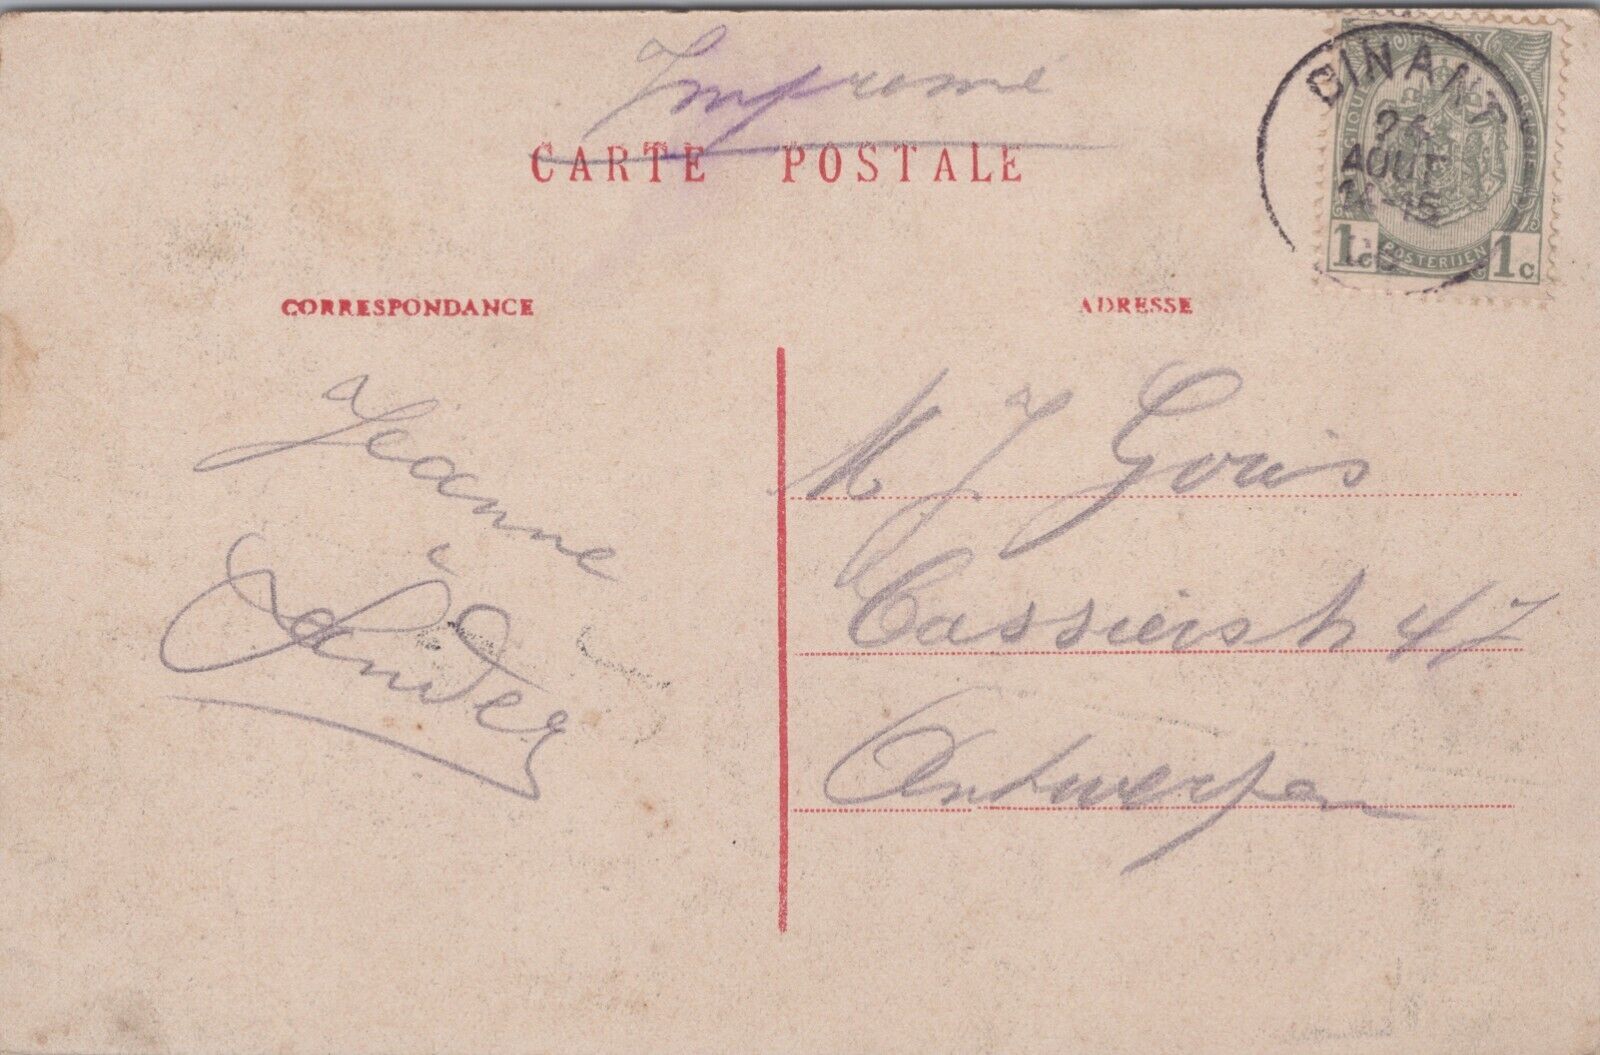 Imprimé
CARTE POSTALE
DINANT
24
AOUT
POSTERIJEN
1c 1c
CORRESPONDANCE
ADRESSE
Jeanne
M J Goris
Cassierstr 47
Antwerpen